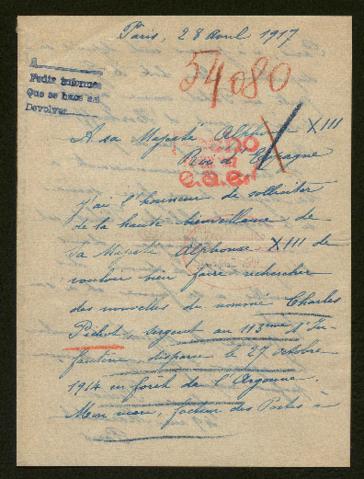 Paris, 28 Avril 1917
54080
A
Pedir informes
Que se hace así
Devolver
A sa Majesté Alphonse XIII
Roi d'Espagne
J'ai l'honneur de solliciter
de la haute bienveillance de
Sa Majesté Alphonse XIII de
vouloir bien faire rechercher
des nouvelles du nommé Charles
sergent au 113ème d'In-
fanterie, disparu le 27 octobre
1914 en forêt de l'Argonne.
Mon mari, facteur des Postes à